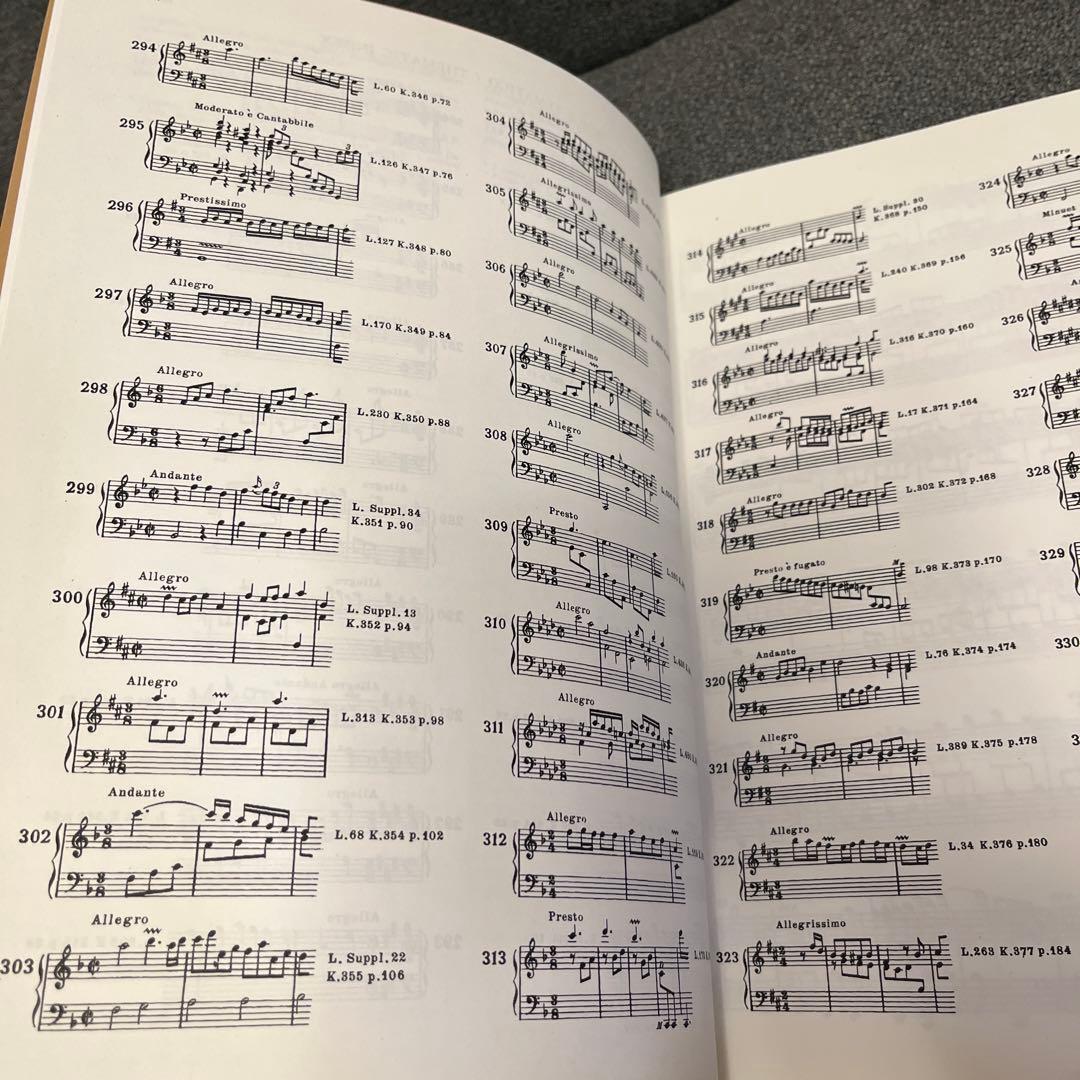 294
Allegro
L.60 K.346 p.72
295
Moderato è Cantabbile
3
3
L.126 K.347 p.76
296
Prestissimo
L.127 K.348 p.80
297
Allegro
L.170 K.349 p.84
298
Allegro
L.230 K.350 p.88
299
Andante
3
L. Suppl.34
K.351 p.90
300
Allegro
L. Suppl.13
K.352 p.94
301
Allegro
L.313 K.353 p.98
302
Andante
L.68 K.354 p.102
303
Allegro
L. Suppl.22
K.355 p.106
304
Allegro
305
Allegrissimo
306
Allegro
307
Allegrissimo
308
Allegro
309
Presto
310
Allegro
311
Allegro
312
Allegro
313
Presto
314
Allegro
L. Suppl. 30
K.368 p.150
315
Allegro
L.240 K.369 p.156
316
Allegro
L.316 K.370 p.160
317
Allegro
L.17 K.371 p.164
318
Allegro
L.302 K.372 p.168
319
Presto è fugato
L.98 K.373 p.170
320
Andante
L.76 K.374 p.174
321
Allegro
L.389 K.375 p.178
322
Allegro
L.34 K.376 p.180
323
Allegrissimo
L.263 K.377 p.184
324
Allegro
325
Minuet
326
327
328
329
330